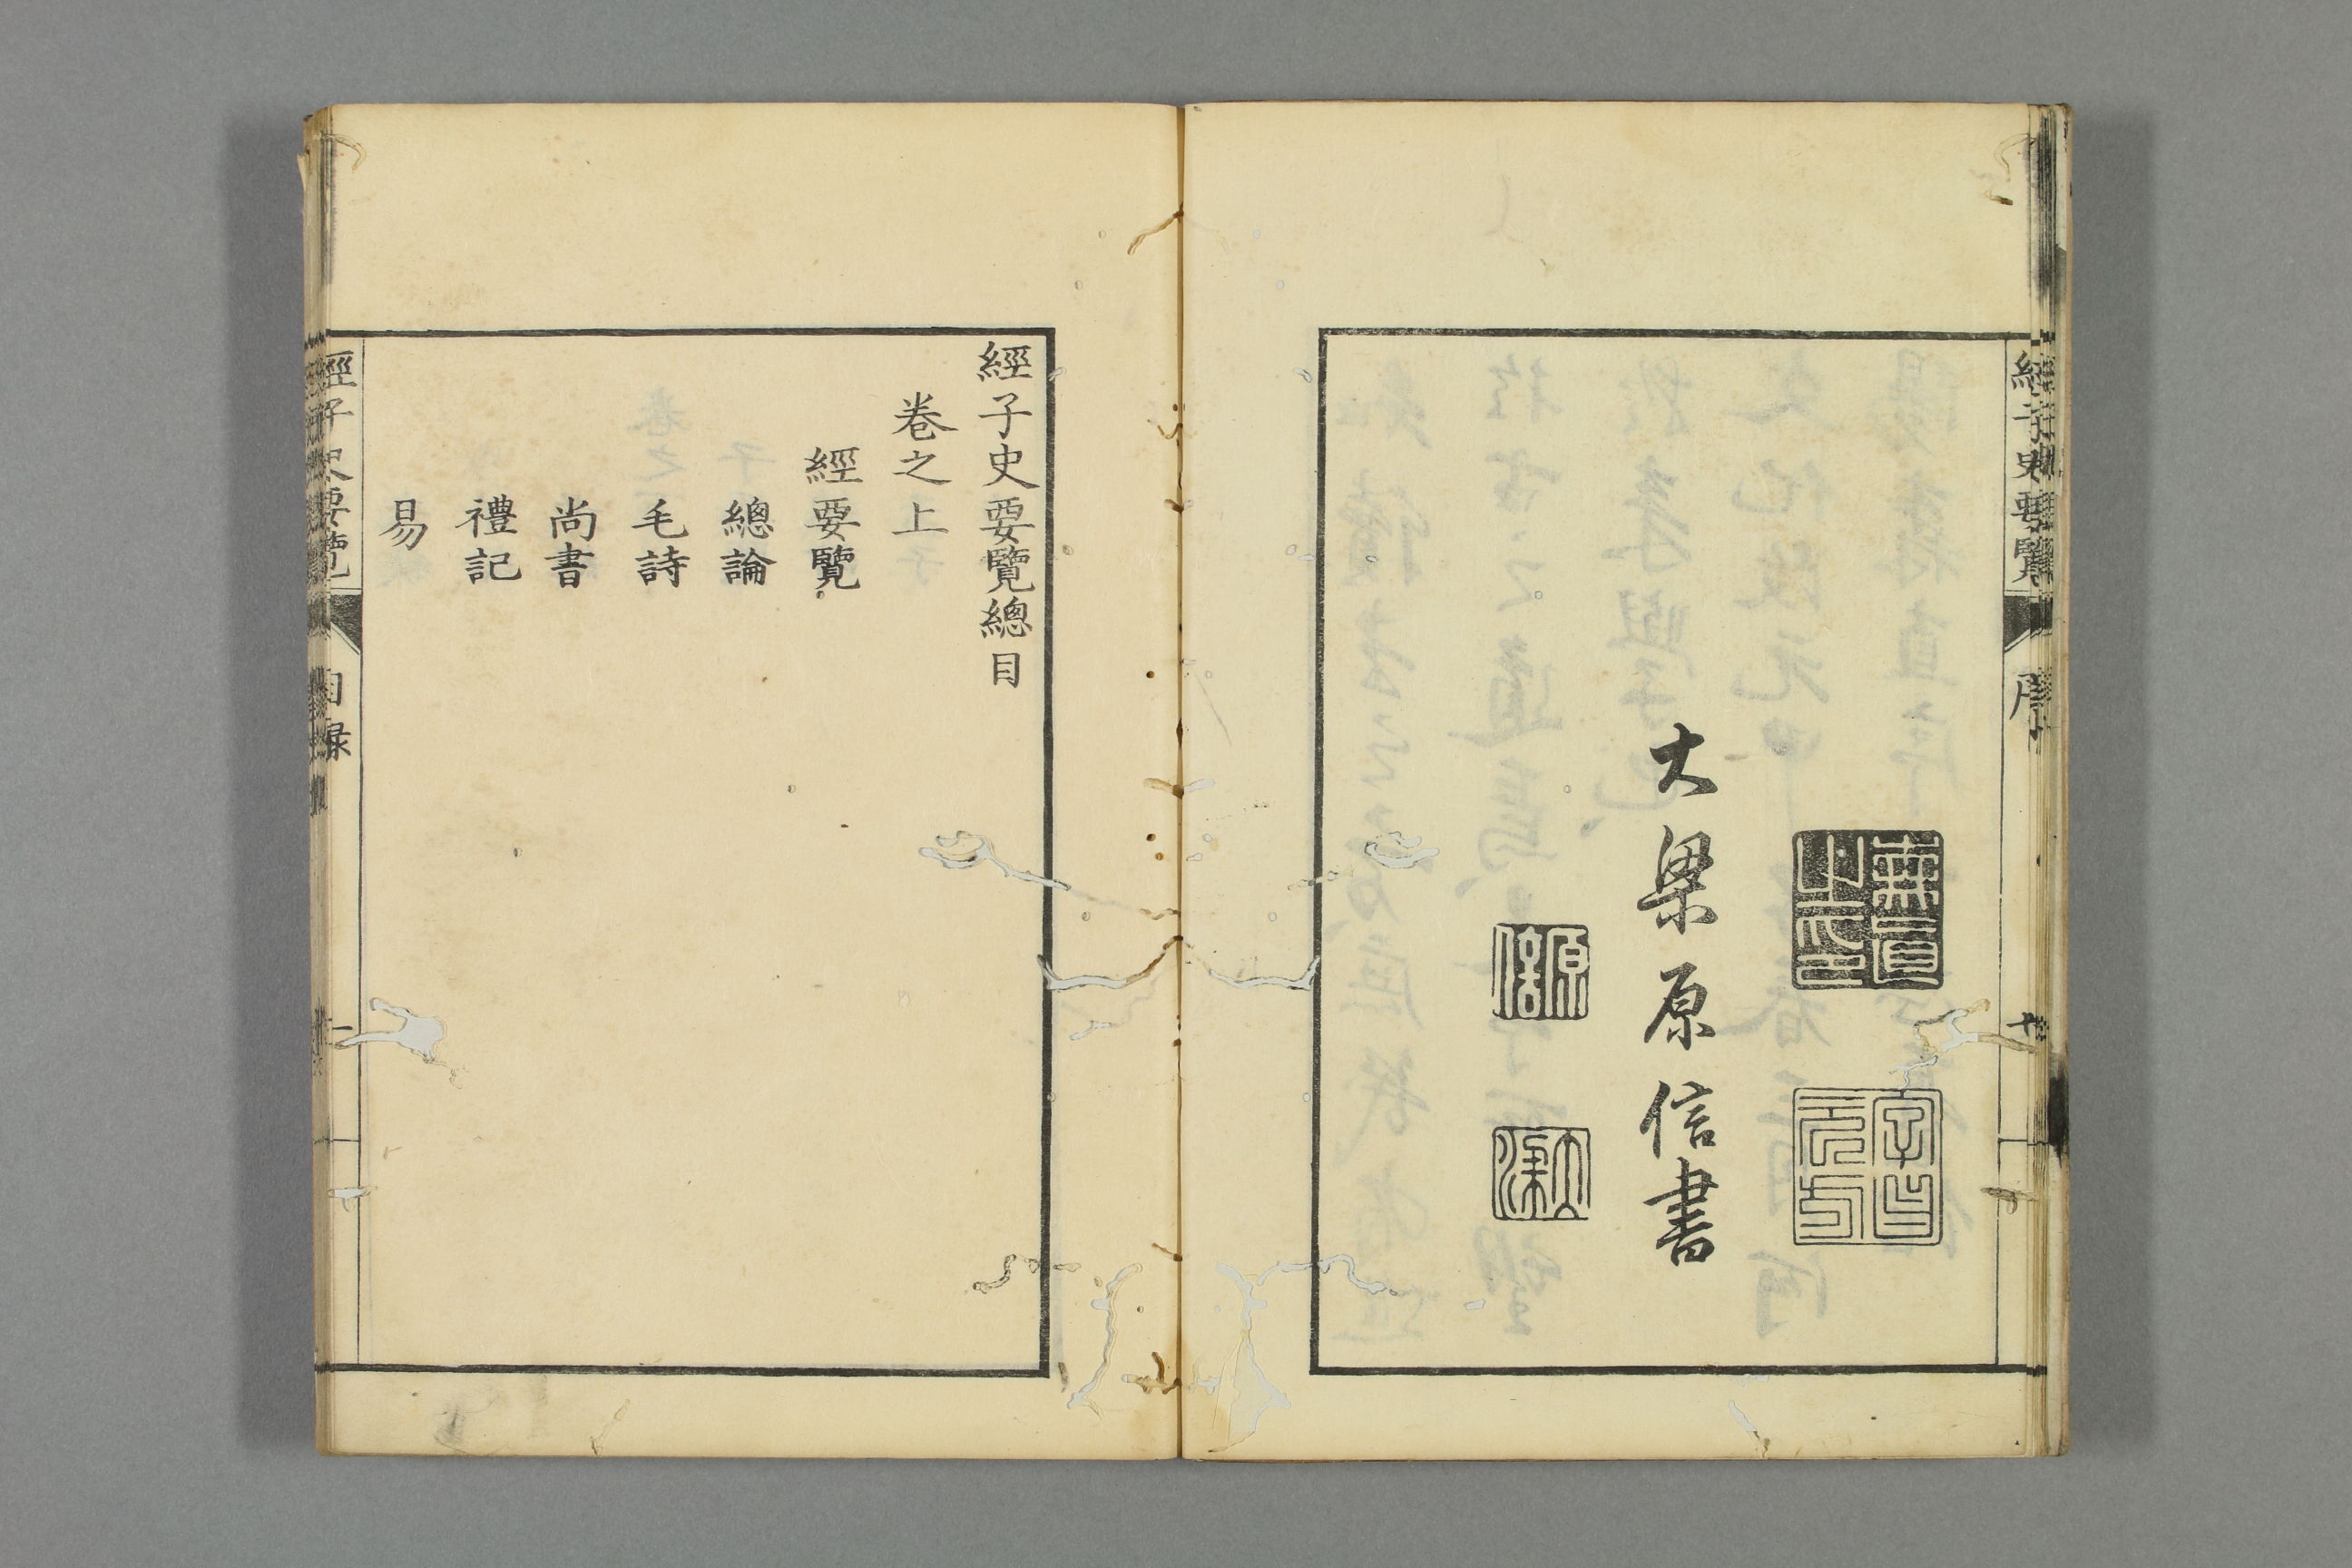 經子史要覽 序
字曰元方
大梁原信書
原信
大梁
經子史要覽總目
卷之上
經要覽
總論
毛詩
尚書
禮記
易
經子史要覽 目録 一